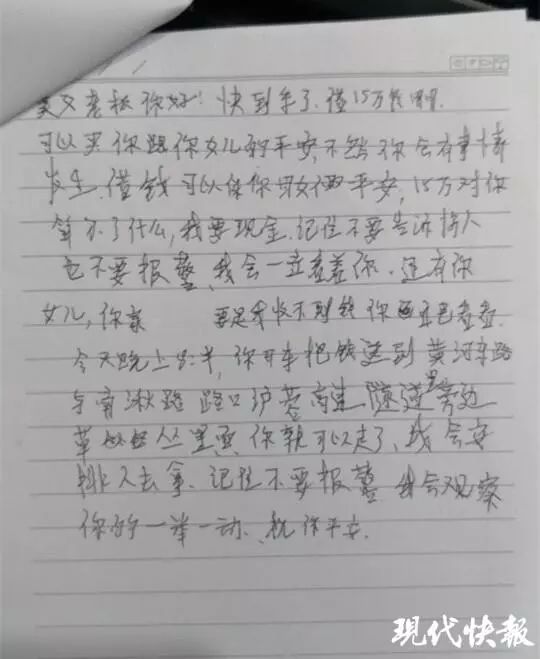 老板你好！快到年了，借15万能
可以买你跟你女儿的平安，不然你会有事情
发生，借钱可以保你母女俩平安，15万对你
算不了什么，我要现金，记住不要告诉
也不要报警，我会一直看着你，还有你
女儿，你 要是我收不到钱你
今天晚上 半，你开车把钱送到黄河 路
与 路路口沪蓉高速隧道 旁边
草 丛里 你就可以走了，我会安
排人去拿，记住不要报警 我会观察
你的一举一动，祝你平安
现代快报